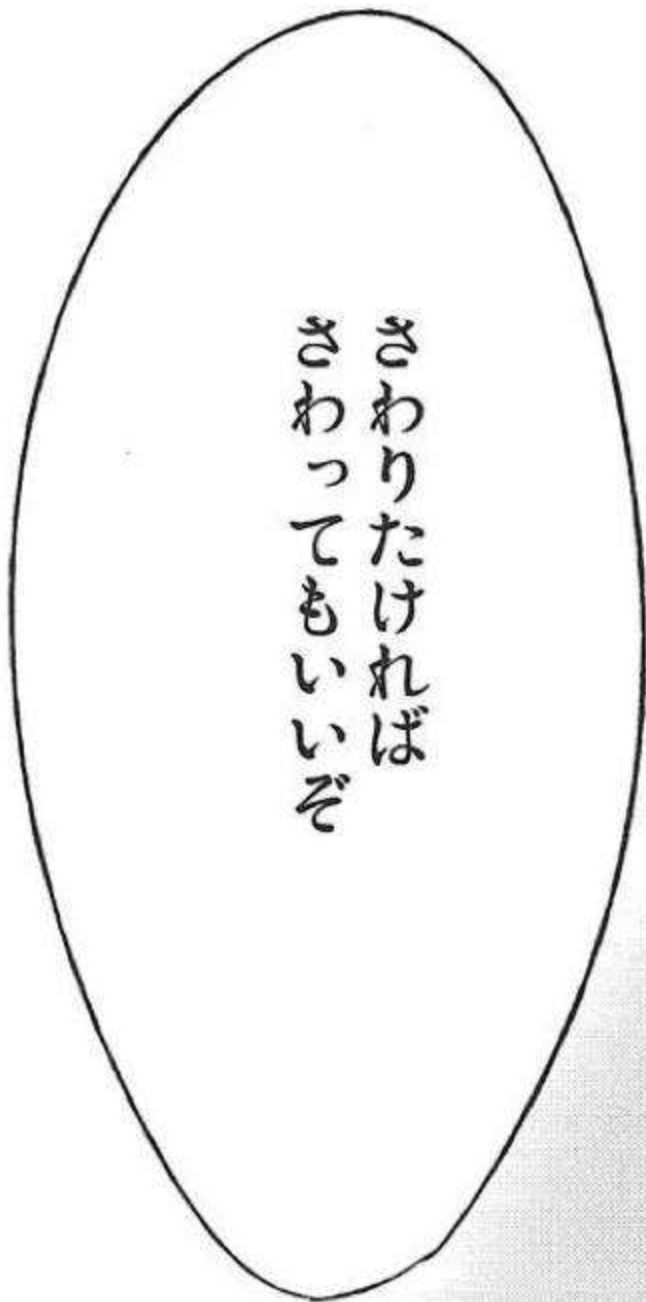 さわりたければ
さわってもいいぞ